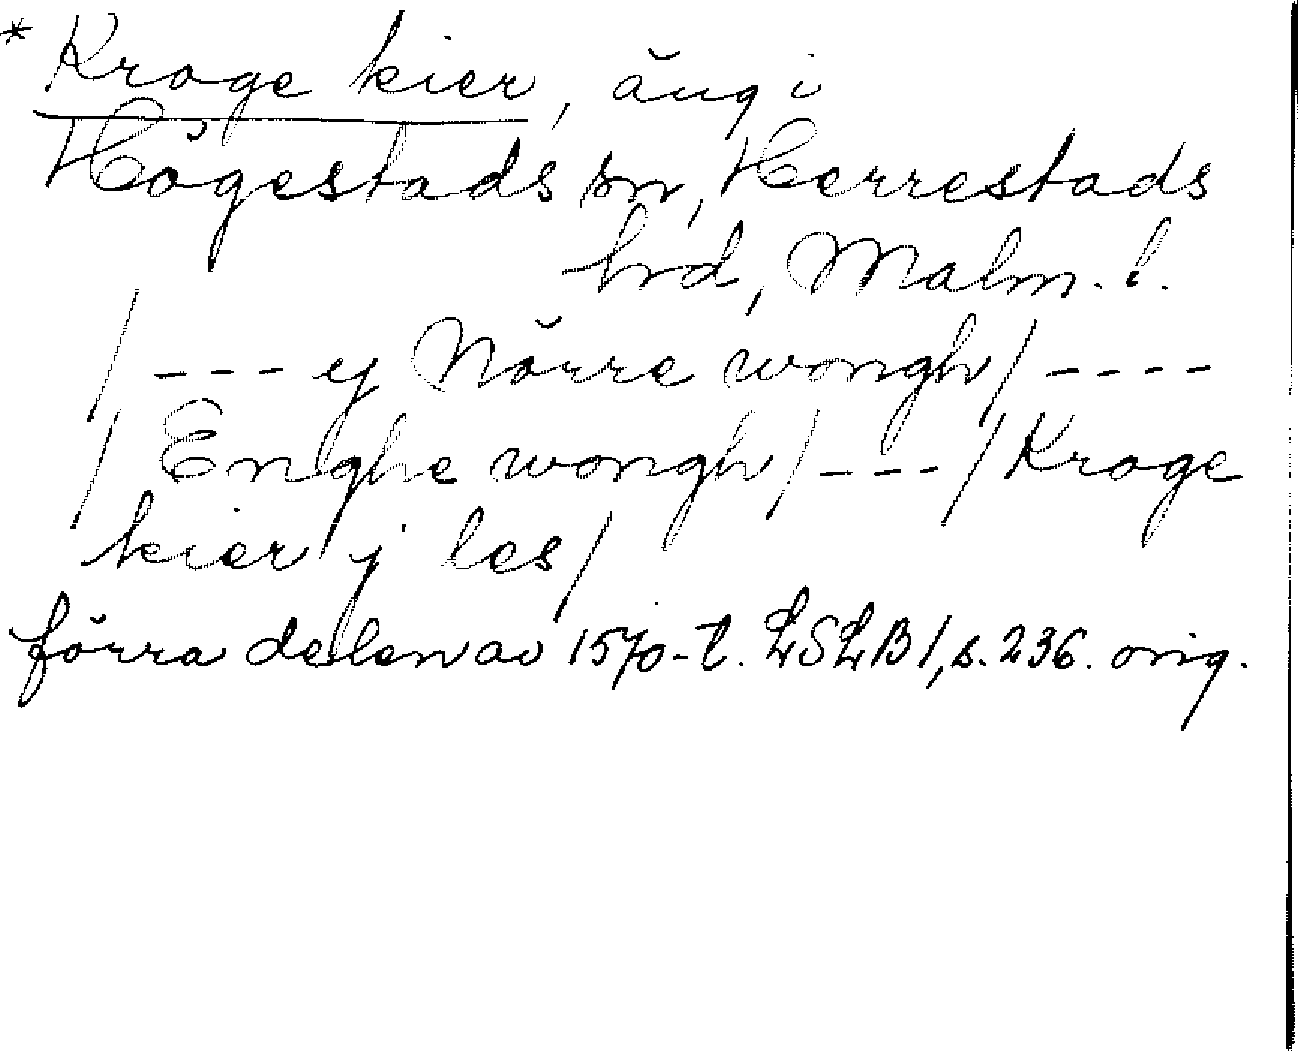 * Kroge kier, äng i
Högestads sn, Herrestads
hrd, Malm. l.
/ --- ej Nörre wongh / ----
/ Enghe wongh / --- / Kroge
kier j les /
förra delen av 1570-t. LSLB 1, s. 236. orig.